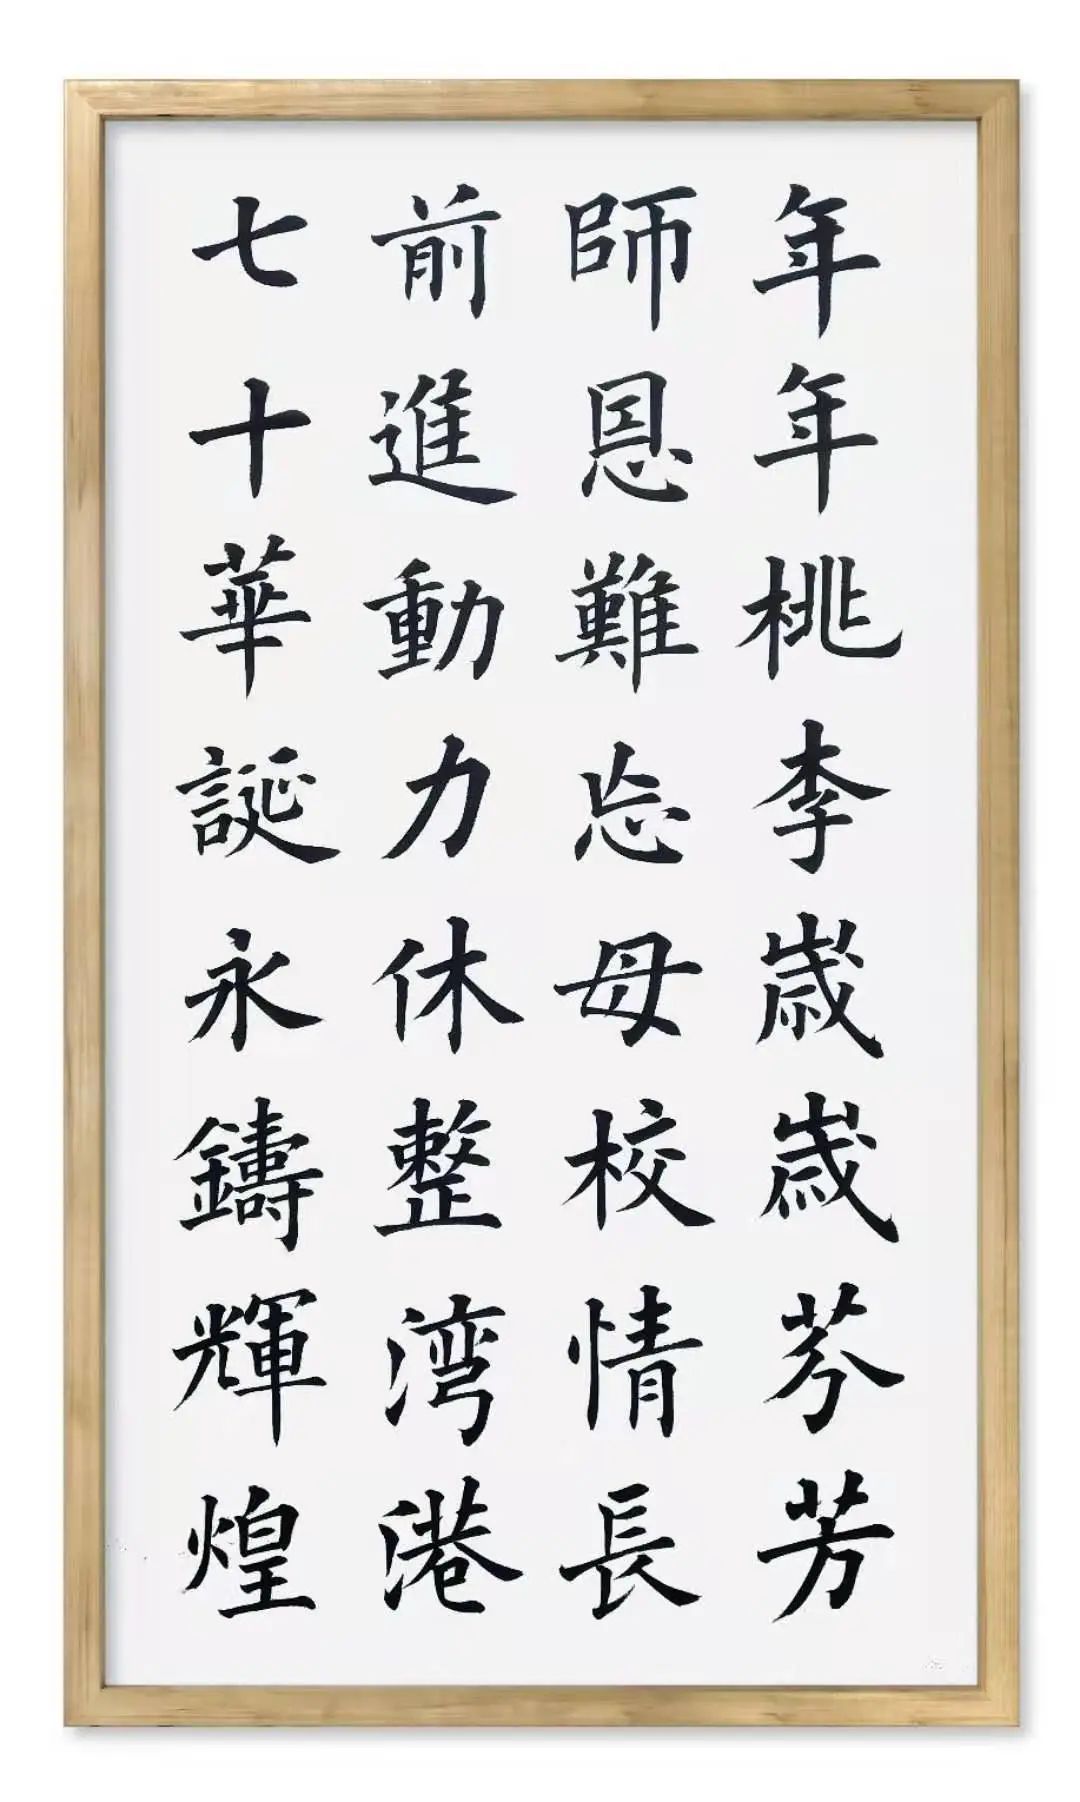 年年桃李歲歲芬芳
師恩難忘母校情長
前進動力休整湾港
七十華誕永鑄輝煌